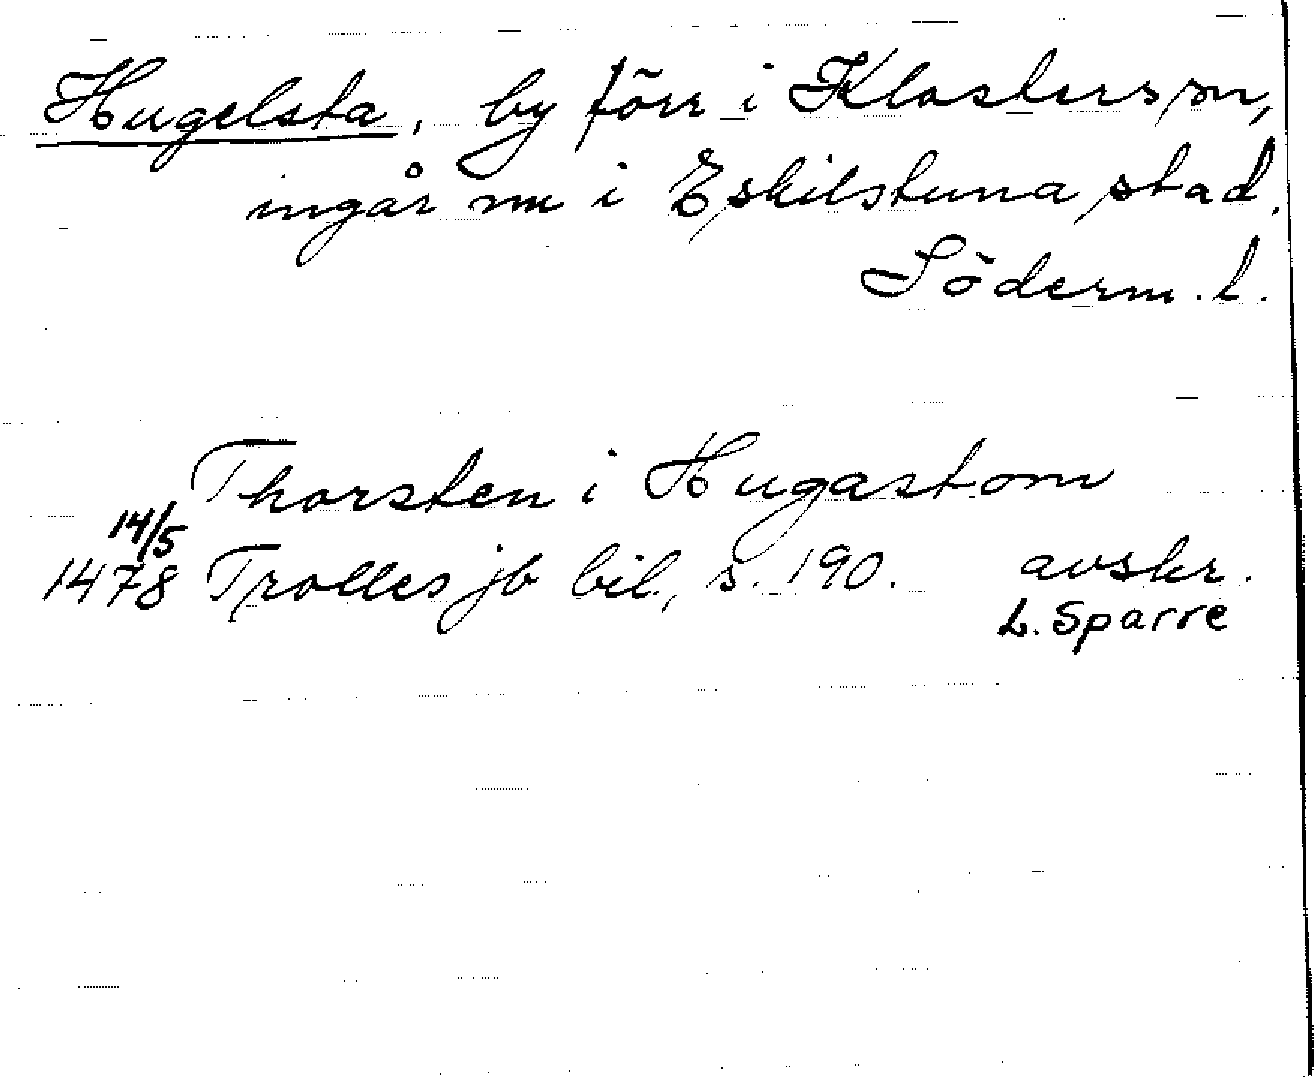 Hugelsta, by förr i Klosters sn,
ingår nu i Eskilstuna stad,
Söderm. l.
Thorsten i Hugastom
14/5
1478 Trolles jb bil, s. 190. avskr.
L. Sparre